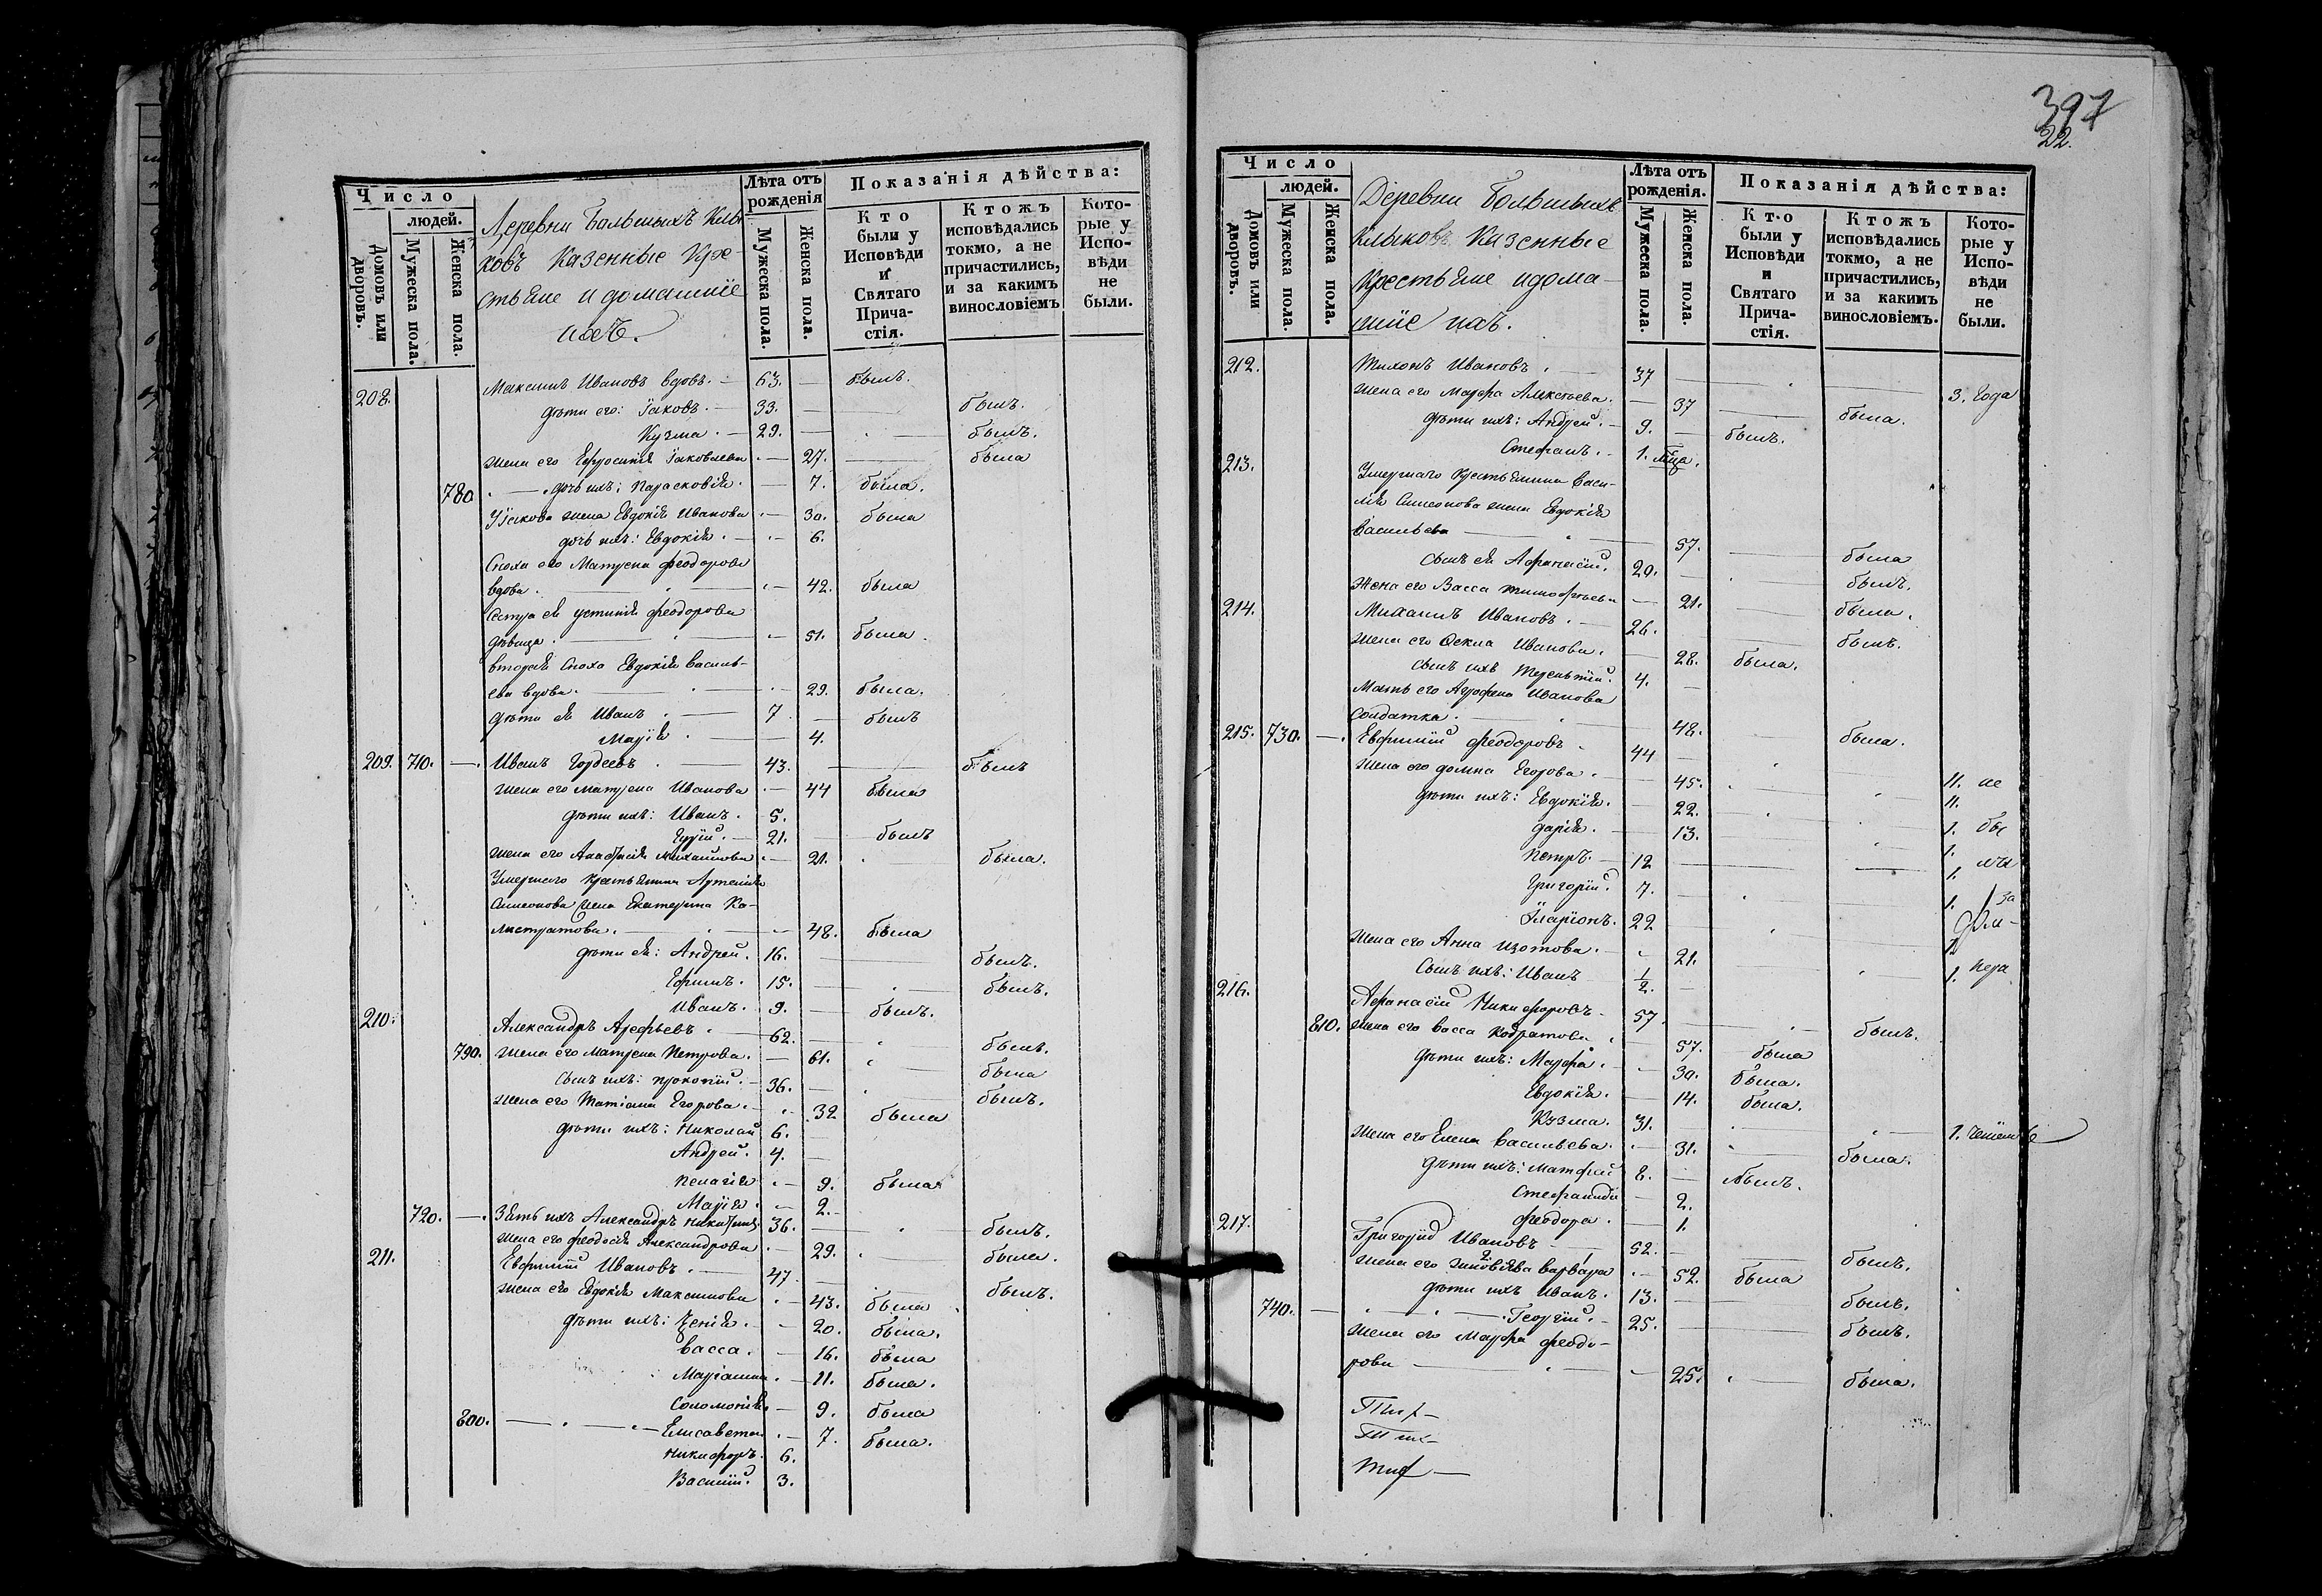 Число
людей.
Домовъ или дворовъ.
Мужеска пола.
Женска пола.
Деревни Большихъ Клы-
ковъ Казенные Кре-
стьяне и домашніе
ихъ.
Лѣта отъ рожденія
Мужеска пола.
Женска пола.
Показанія дѣйства:
Кто были у Исповѣди и Святаго Прича-стія.
Ктожъ исповѣдались токмо, а не причастились, и за какимъ винословіемъ
Кото-рые у Испо-вѣди не были.
208. Максимъ Ивановъ вдовъ. — 63. — былъ.
дѣти его: Іаковъ. — 33. — былъ.
Кузма. — 29. — былъ.
жена его Ефросинія Іаковлева — 27. — была
780 дочь ихъ: Парасковія. — 7. была.
У Іакова жена Евдокія Иванова — 30. была
дочь ихъ: Евдокія. — 6.
Сноха его Матрена Феодорова
вдова. — 42. была
Сестра ея Устинія Феодорова
дѣвица. — 51. была.
вторая Сноха Евдокія Василь-
ева вдова. — 29. была.
дѣти ея Иванъ. — 7. — былъ
Марія. — 4.
209. 710. — Иванъ Гордеевъ. — 43. — былъ
жена его Матрена Иванова — 44 была
дѣти ихъ: Иванъ. 5.
21. — былъ
жена его Анастасія Михайлова — 21. была.
Умершаго крестьянина Артемія
Симеонова жена Екатерина Ка-
листратова. — 48. была
дѣти ея: Андрей. 16. — былъ.
Ефимъ. 15. — былъ.
Иванъ. 9. — былъ.
210. Александръ Арефьевъ. — 62. былъ.
790. жена его Матрена Петрова. — 61. была
сынъ ихъ: Прокопій. — 36. — былъ.
жена его Татіана Егорова. — 32 была
дѣти ихъ: Николай 6. —
Андрей. 4. —
Пелагія — 9. была
Марія. — 2. —
720. — Зять ихъ Александръ Никитинъ. 36. — былъ.
жена его Феодосія Александрова — 29. была.
211. Евфимій Ивановъ. — 47. — былъ.
жена его Евдокія Максимова — 43. была
дѣти ихъ: Ксенія. — 20. была.
Васса. — 16. была
Маріамна. — 11. была.
Соломонія. — 9. была
800. — Елисавета. — 7. была.
Никифоръ. 6.
Василій. 3.
397
22.
Число
людей.
Домовъ или дворовъ.
Мужеска пола.
Женска пола.
Деревни Большихъ
Клыковъ Казенные
Крестьяне и дома-
шніе ихъ.
Лѣта отъ рожденія.
Мужеска пола.
Женска пола.
Показанія дѣйства:
Кто были у Исповѣди и Святаго Прича-стія.
Ктожъ исповѣдались токмо, а не причастились, и за какимъ винословіемъ.
Кото-рые у Испо-вѣди не были.
212. Тихонъ Ивановъ. 37 — 3. года
жена его Марфа Алексѣева. — 37 — была.
дѣти ихъ: Андрей. — 9. — былъ.
Стефанъ. — 1. мѣца.
213. Умершаго крестьянина Васи-
лія Симеонова жена Евдокія
Васильева — 57. — была
сынъ ея Афанасій. 20. — былъ.
Жена его Васса Тимофѣева — 21. — была.
214. Михаилъ Ивановъ. — 26. — былъ.
жена его Фекла Иванова. — 28. была.
сынъ ихъ Терентій. 4. —
Мать его Агрофена Иванова
солдатка. — 48. — была.
215. 730. — Евфимій Феодоровъ. 44 — 11. не
жена его Домна Егорова. — 45. 11.
дѣти ихъ: Евдокія. — 22. 1. бы
Дарія. — 13. 1.
Петръ. — 12 — 1. ли
Григорій. 7. — 1. за
Иларіонъ. 22
жена его Анна Изотова. — 21.
Сынъ ихъ: Иванъ 1/2. — 1.
216. Афанасій Никифоровъ. 57. — былъ.
810. жена его Васса Кодратова. — 57. была
дѣти ихъ: Марфа. — 30. была.
Евдокія. — 14. была.
Кузма. 31. 1.
жена его Елена Васильева. — 31. была.
дѣти ихъ: Матфей 8. — былъ.
Стефанида — 2.
Феодора. — 1.
217. Григорій Ивановъ — 52. — былъ.
жена его Зиновіева Варвара — 52. была
дѣти ихъ Иванъ. 13. — былъ.
740. — Георгій. — 25. — былъ.
жена его Марфа Феодо-
рова — 25. была.